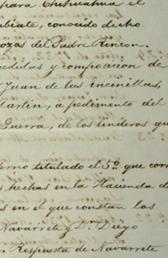 para Chihuahua el
obiate, conocido dicho
ozas del Padre Rincon.
edulas y composicion de
Juan de las encinillas,
artin, a pedimento del
Guerra, de los linderos qu
erno titulado el 5º que corr
s hechas en la Hacienda d
as en el que constan los
Navarrete y Dn. Diego
Respuesta de Navarrete